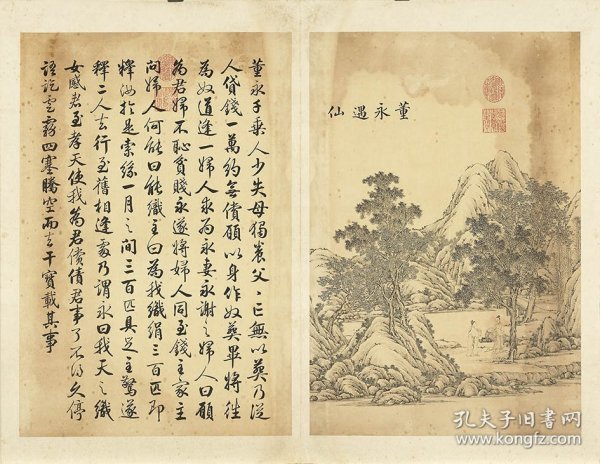 董永遇仙
董永千乘人少失母獨養父〻亡無以葬乃從
人貸錢一萬約無償願以身作奴葬畢將往
為奴道逢一婦人求為永妻永謝之婦人曰願
為君婦不恥貧賤永遂將婦人同至錢主家主
問婦人何能曰能織主曰為我織絹三百匹即
釋汝於是索絲一月之間三百匹具足主驚遂
釋二人去行至舊相逢處乃謂永曰我天之織
女感君至孝天使我為君償債君事了不得久停
語訖雲霧四塞騰空而去干寶載其事
孔夫子旧书网
www.kongfz.com